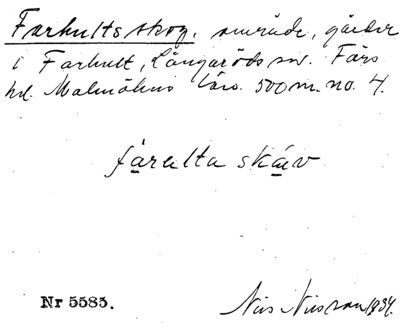 Farhultsskog, område, gårdar
i Farhult, Långaröds sn. Färs
hd. Malmöhus län. 500 m. no. 4.
farulta skáv
Nr 5585.
Nils Nilsson 1934.